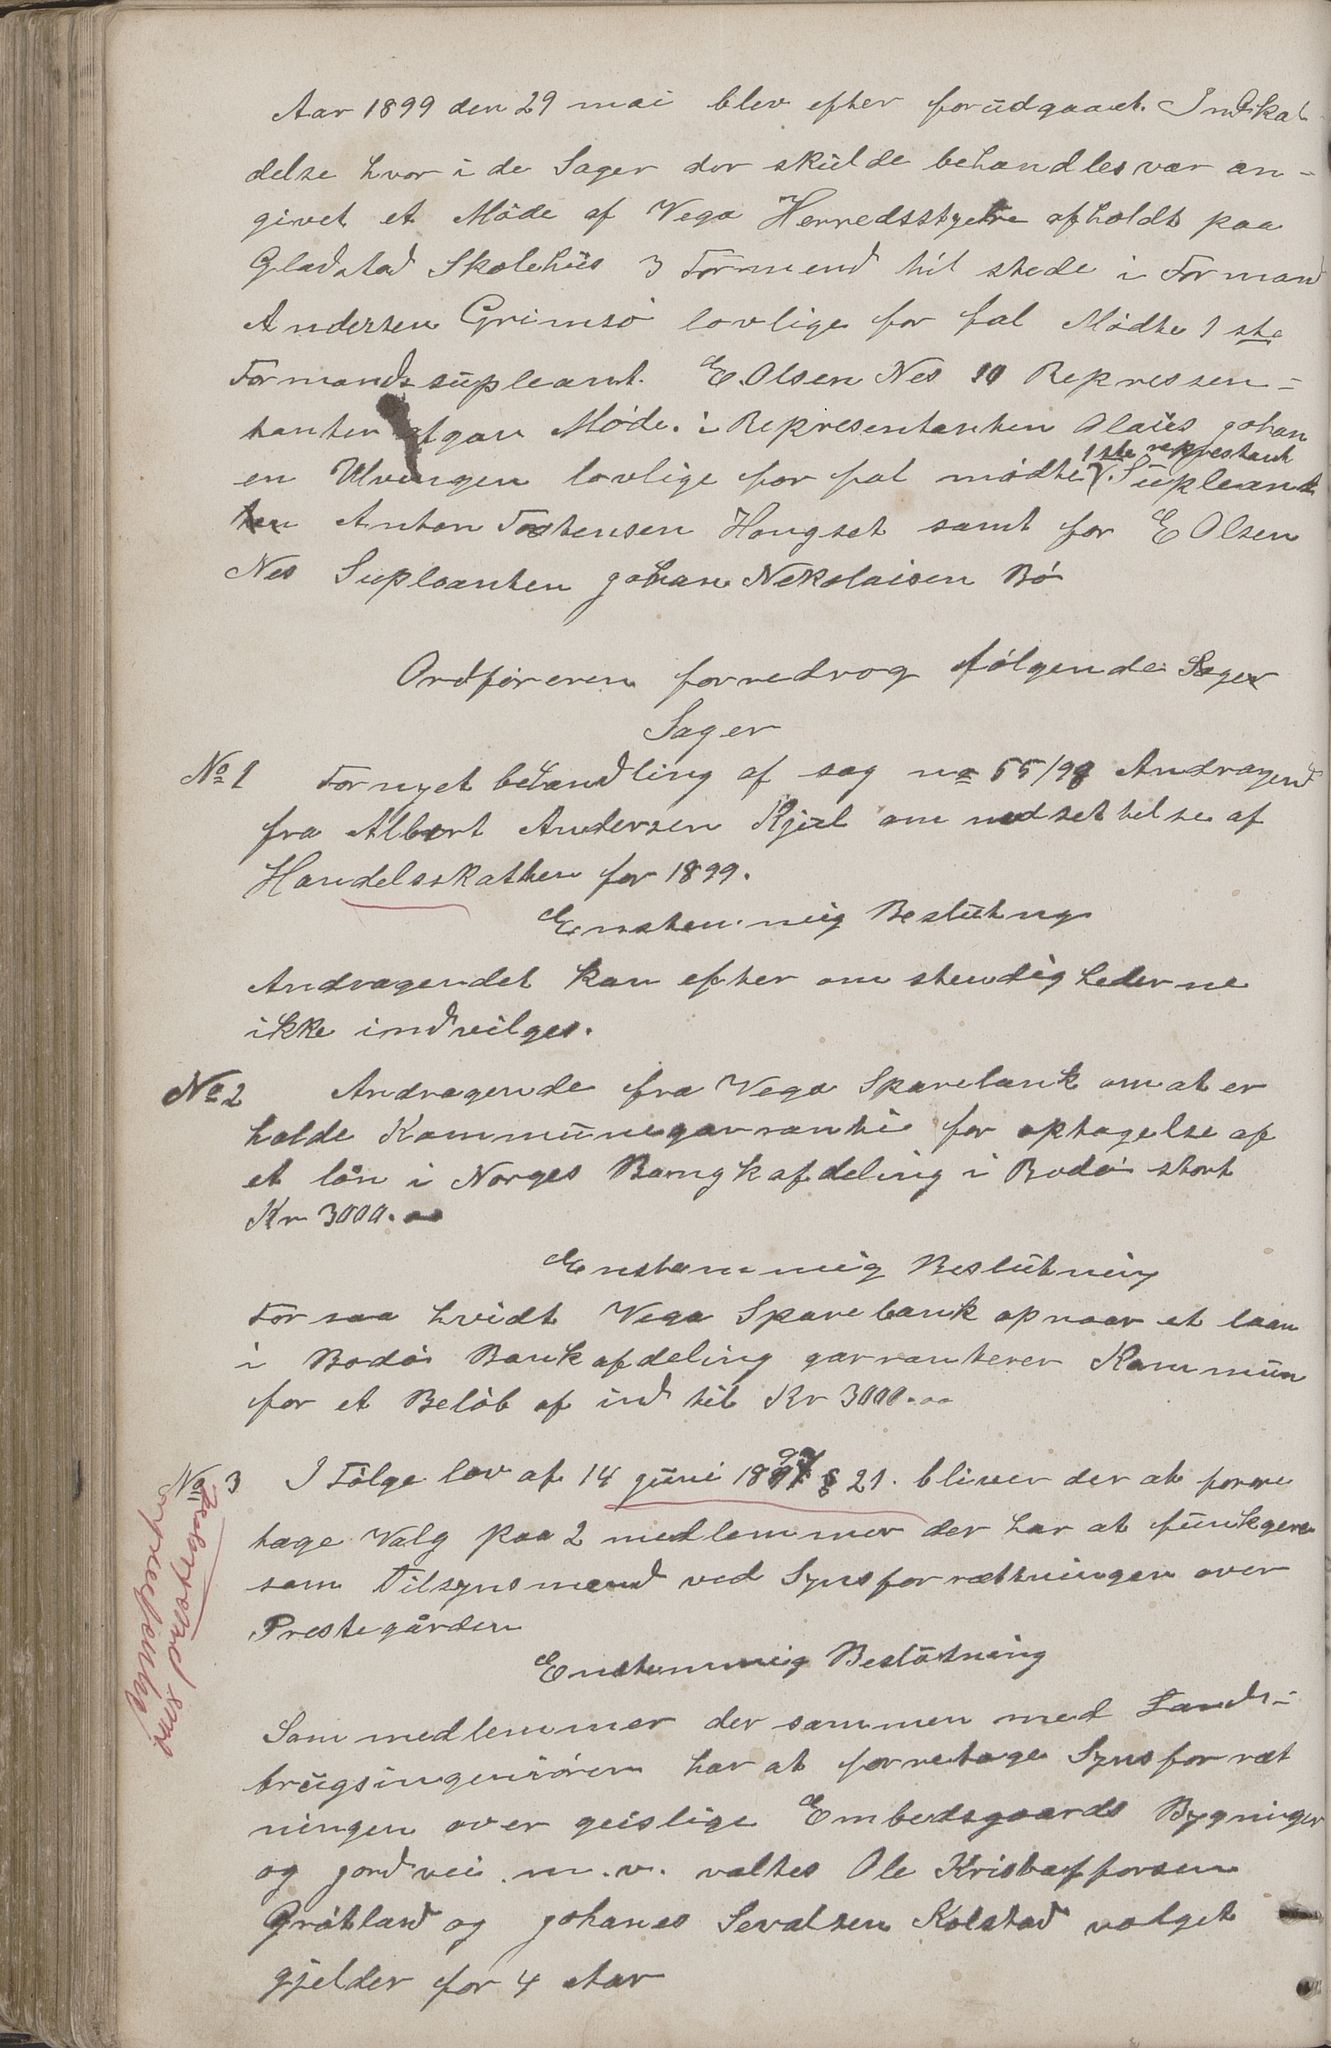 Aar 1899 den 29 mai blev efter forudgaaet Indkal
delse hvor i de Sager der skulde behandles var an-
givet et Möde af Vega Herredsstyre afholdt paa
Gladstad Skolehus 3 Formend til stede i Formand
Andersen Grimsö lovlige for fal Mödte 1ste
Formandssupleant E. Olsen Nes 10 Repressen-
tanter afgav Möde. i Representanten Olaus Johan
en Ulvingen lovlige for fal mödte 1ste represtant Supleant
ten Anton Tostensen Hongset samt for E Olsen
Nes Supleanten Johan Nekolaisen Bö
Ordföreren forredrog følgende Sager
Sager
No 1 Fornyet behandling af sag no 55/98 Andragend
fra Albert Andersen Kjul om nedsettelse af
Handelsskatten for 1899.
Enstemmig Beslutng
Andragendet kan efter omstendighederne
ikke indvilges.
No 2 Andragende fra Vega Sparebank om at er
holde Kommunegarranti for optagelse af
et lån i Norges Bangkafdeling i Bodö stort
Kr 3000.00
Enstemmig Beslutning
For saa hvidt Vega Sparebank opnaar et laan
i Bodö Bankafdeling garranterer Kommun
for et Belöb af ind til Kr 3000.00
No 3 I Fölge lov af 14 juni 1897 § 21. bliver der at forre
tage Valg paa 2 medlemmer der har at funkgere
som Tilsynsmend ved Synsforrættningen over
Prestegården
Enstemmig Beslutning
Som medlemmer der sammen med Lands-
brugsingeniören har at forretage Synsforræt
ningen over geislige Embedsgaards Bygninger
og jordvei m.v. valtes Ole Kristoffersen
Gröttland og Johanes Sevalsen Kolstad valget
gjelder for 4 Aar